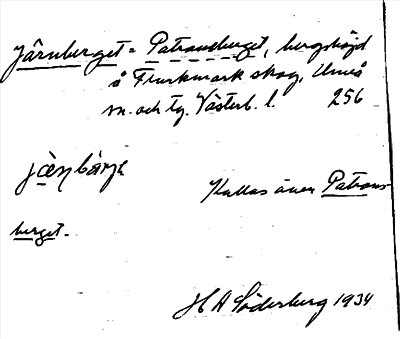 Järnberget = Patronsberget, bergshöjd
å Flurkmark skog, Umeå
sn. och tg. Västerb. l. 256
Kallas även Patrons-
berget.
H A Söderberg 1934